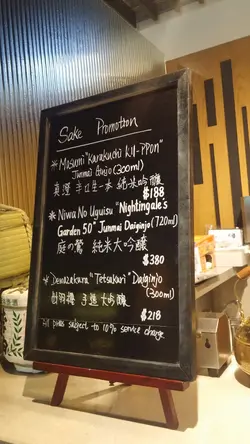 Sake Promotion
* Masumi "Karakuchi Kii-ppon"
Junmai Ginjo (300ml)
真澄 辛口生一本 純米吟醸
$188
* Niwa No Uguisu "Nightingale's
Garden 50" Junmai Daiginjo (720ml)
庭の鶯 純米大吟醸
$380
* Dewazakura "Tetsukuri" Daiginjo
(300ml)
出羽桜 手造大吟醸
$218
All prices subject to 10% service charge